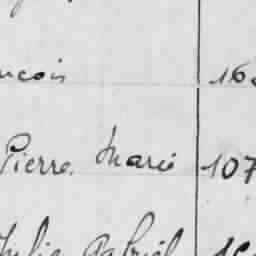 ucois 16
Pierre Marie 107
Julie Gabriel 16